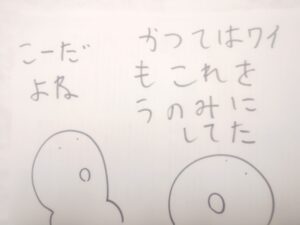 かつてはワイ
もこれを
うのみに
してた
こーだ
よね